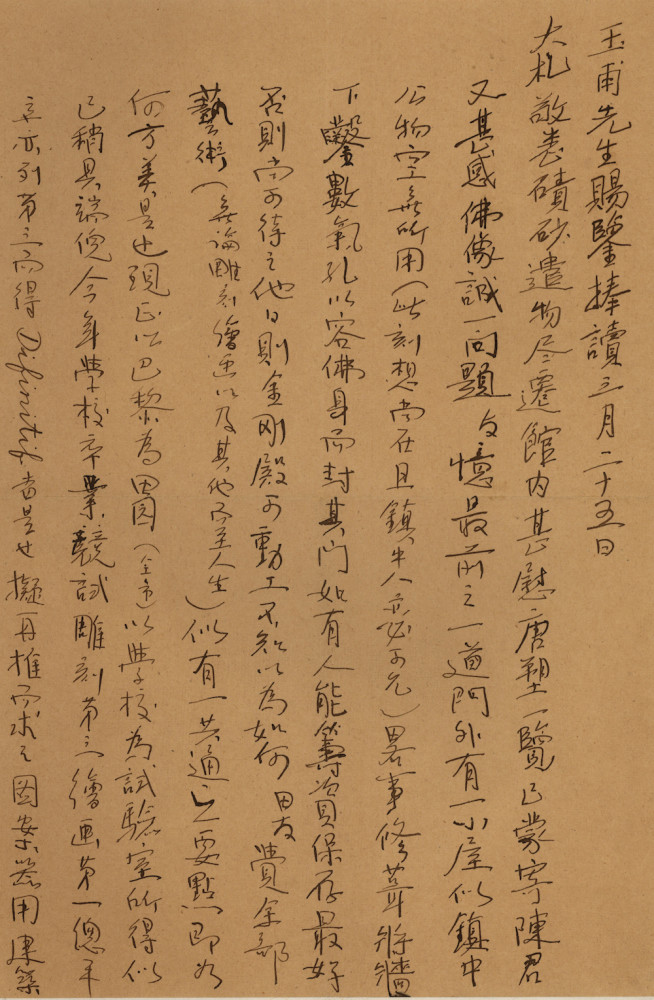 玉甫先生賜鑒捧讀三月二十五日
大札敬悉磧砂遺物尽遷館内甚慰唐塑一覽已蒙寄陳君
又甚感佛像誠一问題友憶最前之一道门外有一小屋似鎮中
公物空無所用（此刻想尚在且鎮中人亦必可允）畧事修葺将牆
下鑿數氣孔以容佛身而封其门如有人能籌資保存最好
否則尚可待之他日則金刚殿可動工不知以為如何 費余部
藝術（無論雕刻繪画以及其他而至人生）似有一共通之要點即为
何方美是也現正以巴黎為田园（全市）以學校為試驗室所得似
已稍具端倪今年學校卒業競試雕刻第三繪画第一總平
亦列第三而得 Difinitif 当是也擬再推而求之图案器用建築